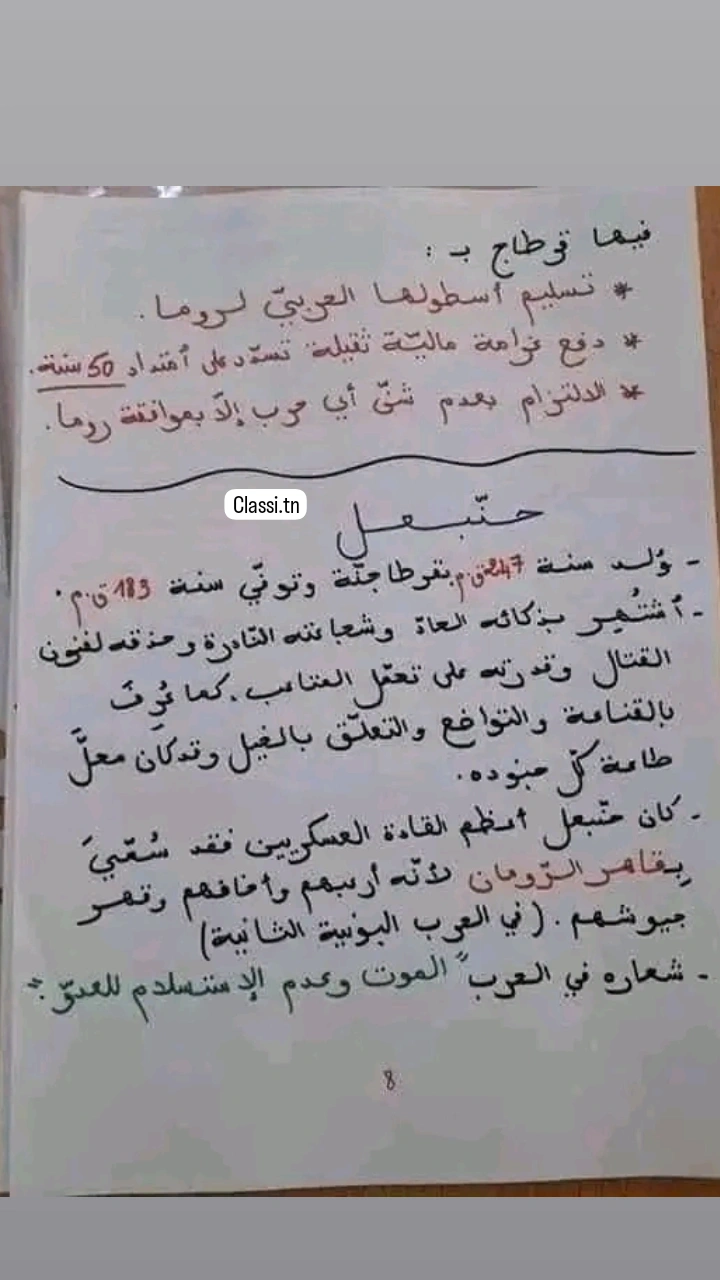 فيها قرطاج بـ :
* تسليم أسطولها الحربيّ لروما.
* دفع غرامة ماليّة ثقيلة تسدّد على أمتداد 50 سنة.
* الالتزام بعدم شنّ أي حرب إلاّ بموافقة روما.
Classi.tn
حنّبعل
- وُلد سنة 247 ق.م بقرطاجنّة وتوفّي سنة 183 ق.م.
- أشتُهر بذكائه الحادّ وشجاعته النّادرة وحذقه لفنون
القتال وقدرته على تحمّل المتاعب. كما عُرِفَ
بالقناعة والتواضع والتعلّق بالخيل وقد كان محلَّ
طاعة كلّ جنوده.
- كان حنّبعل أعظم القادة العسكريين فقد سُمّيَ
بِقاهر الرّومان لأنّه أرهبهم وأخافهم وقهر
جيوشهم. (في الحرب البونية الثانية)
- شعاره في الحرب "الموت وعدم الإستسلام للعدوّ".
8